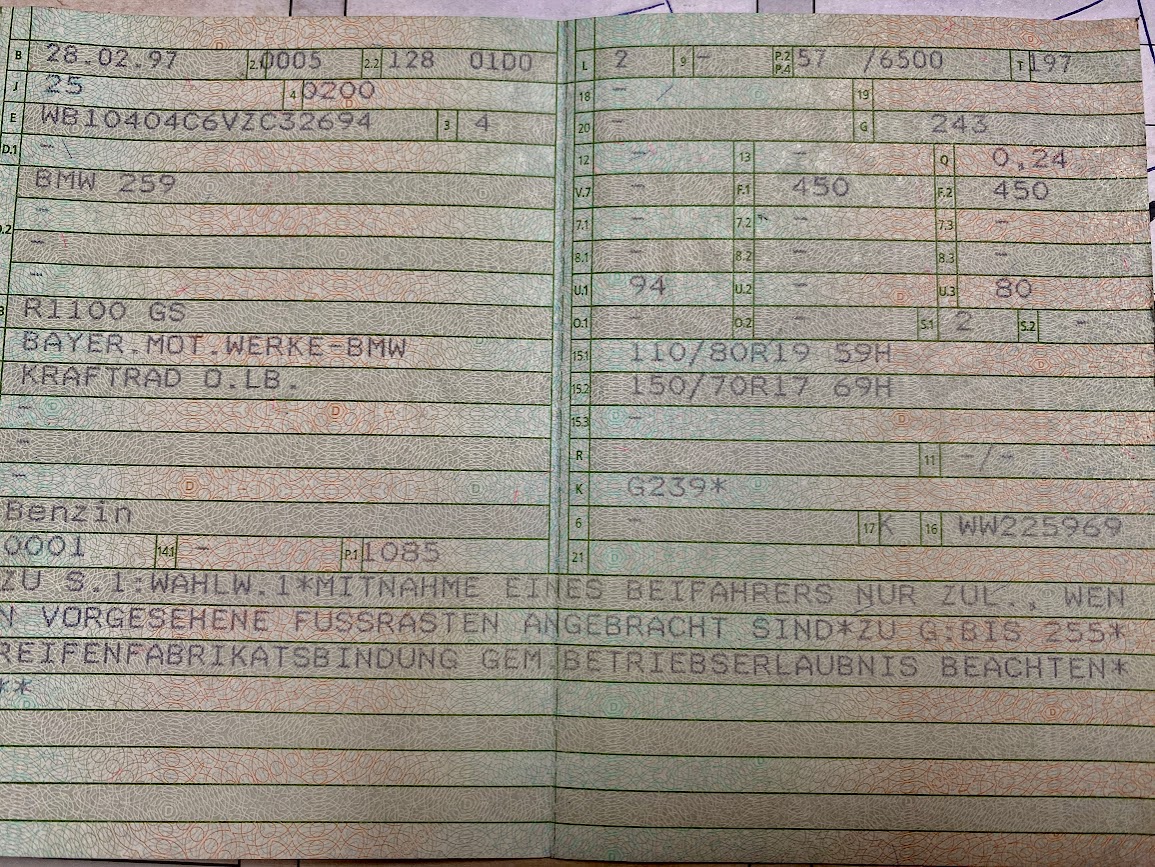 B 28.02.97 2.1 0005 2.2 128 01D0
J 25 4 0200
E WB10404C6VZC32694 3 4
D.1 -
BMW 259
-
D.2 -
-
R1100 GS
BAYER.MOT.WERKE-BMW
KRAFTRAD O.LB.
-
-
-
Benzin
0001 14.1 - P.1 1085
L 2 9 - P.2 P.4 57 /6500 T 197
18 - 19
20 - G 243
12 - 13 - Q 0,24
V.7 - F.1 450 F.2 450
7.1 - 7.2 - 7.3 -
8.1 - 8.2 - 8.3 -
U.1 94 U.2 - U.3 80
O.1 - O.2 - S.1 2 S.2 -
15.1 110/80R19 59H
15.2 150/70R17 69H
15.3 -
R 11 -/-
K G239*
6 - 17 K 16 WW225969
21
ZU S.1:WAHLW.1*MITNAHME EINES BEIFAHRERS NUR ZUL., WEN
N VORGESEHENE FUSSRASTEN ANGEBRACHT SIND*ZU G:BIS 255*
REIFENFABRIKATSBINDUNG GEM.BETRIEBSERLAUBNIS BEACHTEN*
**